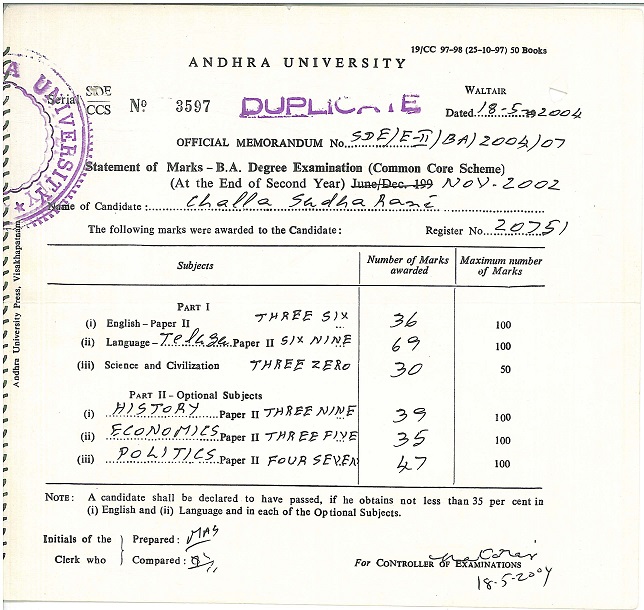 19/CC 97-98 (25-10-97) 50 Books
ANDHRA UNIVERSITY
A UNIVERSITY
Serial SDE/CCS No 3597 DUPLICATE
WALTAIR
Dated 18-5-2004
OFFICIAL MEMORANDUM No. SDE/E-II/BA/2004/07
Statement of Marks – B.A. Degree Examination (Common Core Scheme)
(At the End of Second Year) June/Dec. 199 NOV-2002
Name of Candidate: Challa Sudha Rani
The following marks were awarded to the Candidate: Register No. 20751
Subjects Number of Marks awarded Maximum number of Marks
PART I
(i) English-Paper II THREE SIX 36 100
(ii) Language-Telugu Paper II SIX NINE 69 100
(iii) Science and Civilization THREE ZERO 30 50
PART II – Optional Subjects
(i) HISTORY Paper II THREE NINE 39 100
(ii) ECONOMICS Paper II THREE FIVE 35 100
(iii) POLITICS Paper II FOUR SEVEN 47 100
NOTE: A candidate shall be declared to have passed, if he obtains not less than 35 per cent in
(i) English and (ii) Language and in each of the Optional Subjects.
Initials of the Prepared:
Clerk who Compared:
For CONTROLLER OF EXAMINATIONS
18-5-2004
Andhra University Press, Visakhapatnam